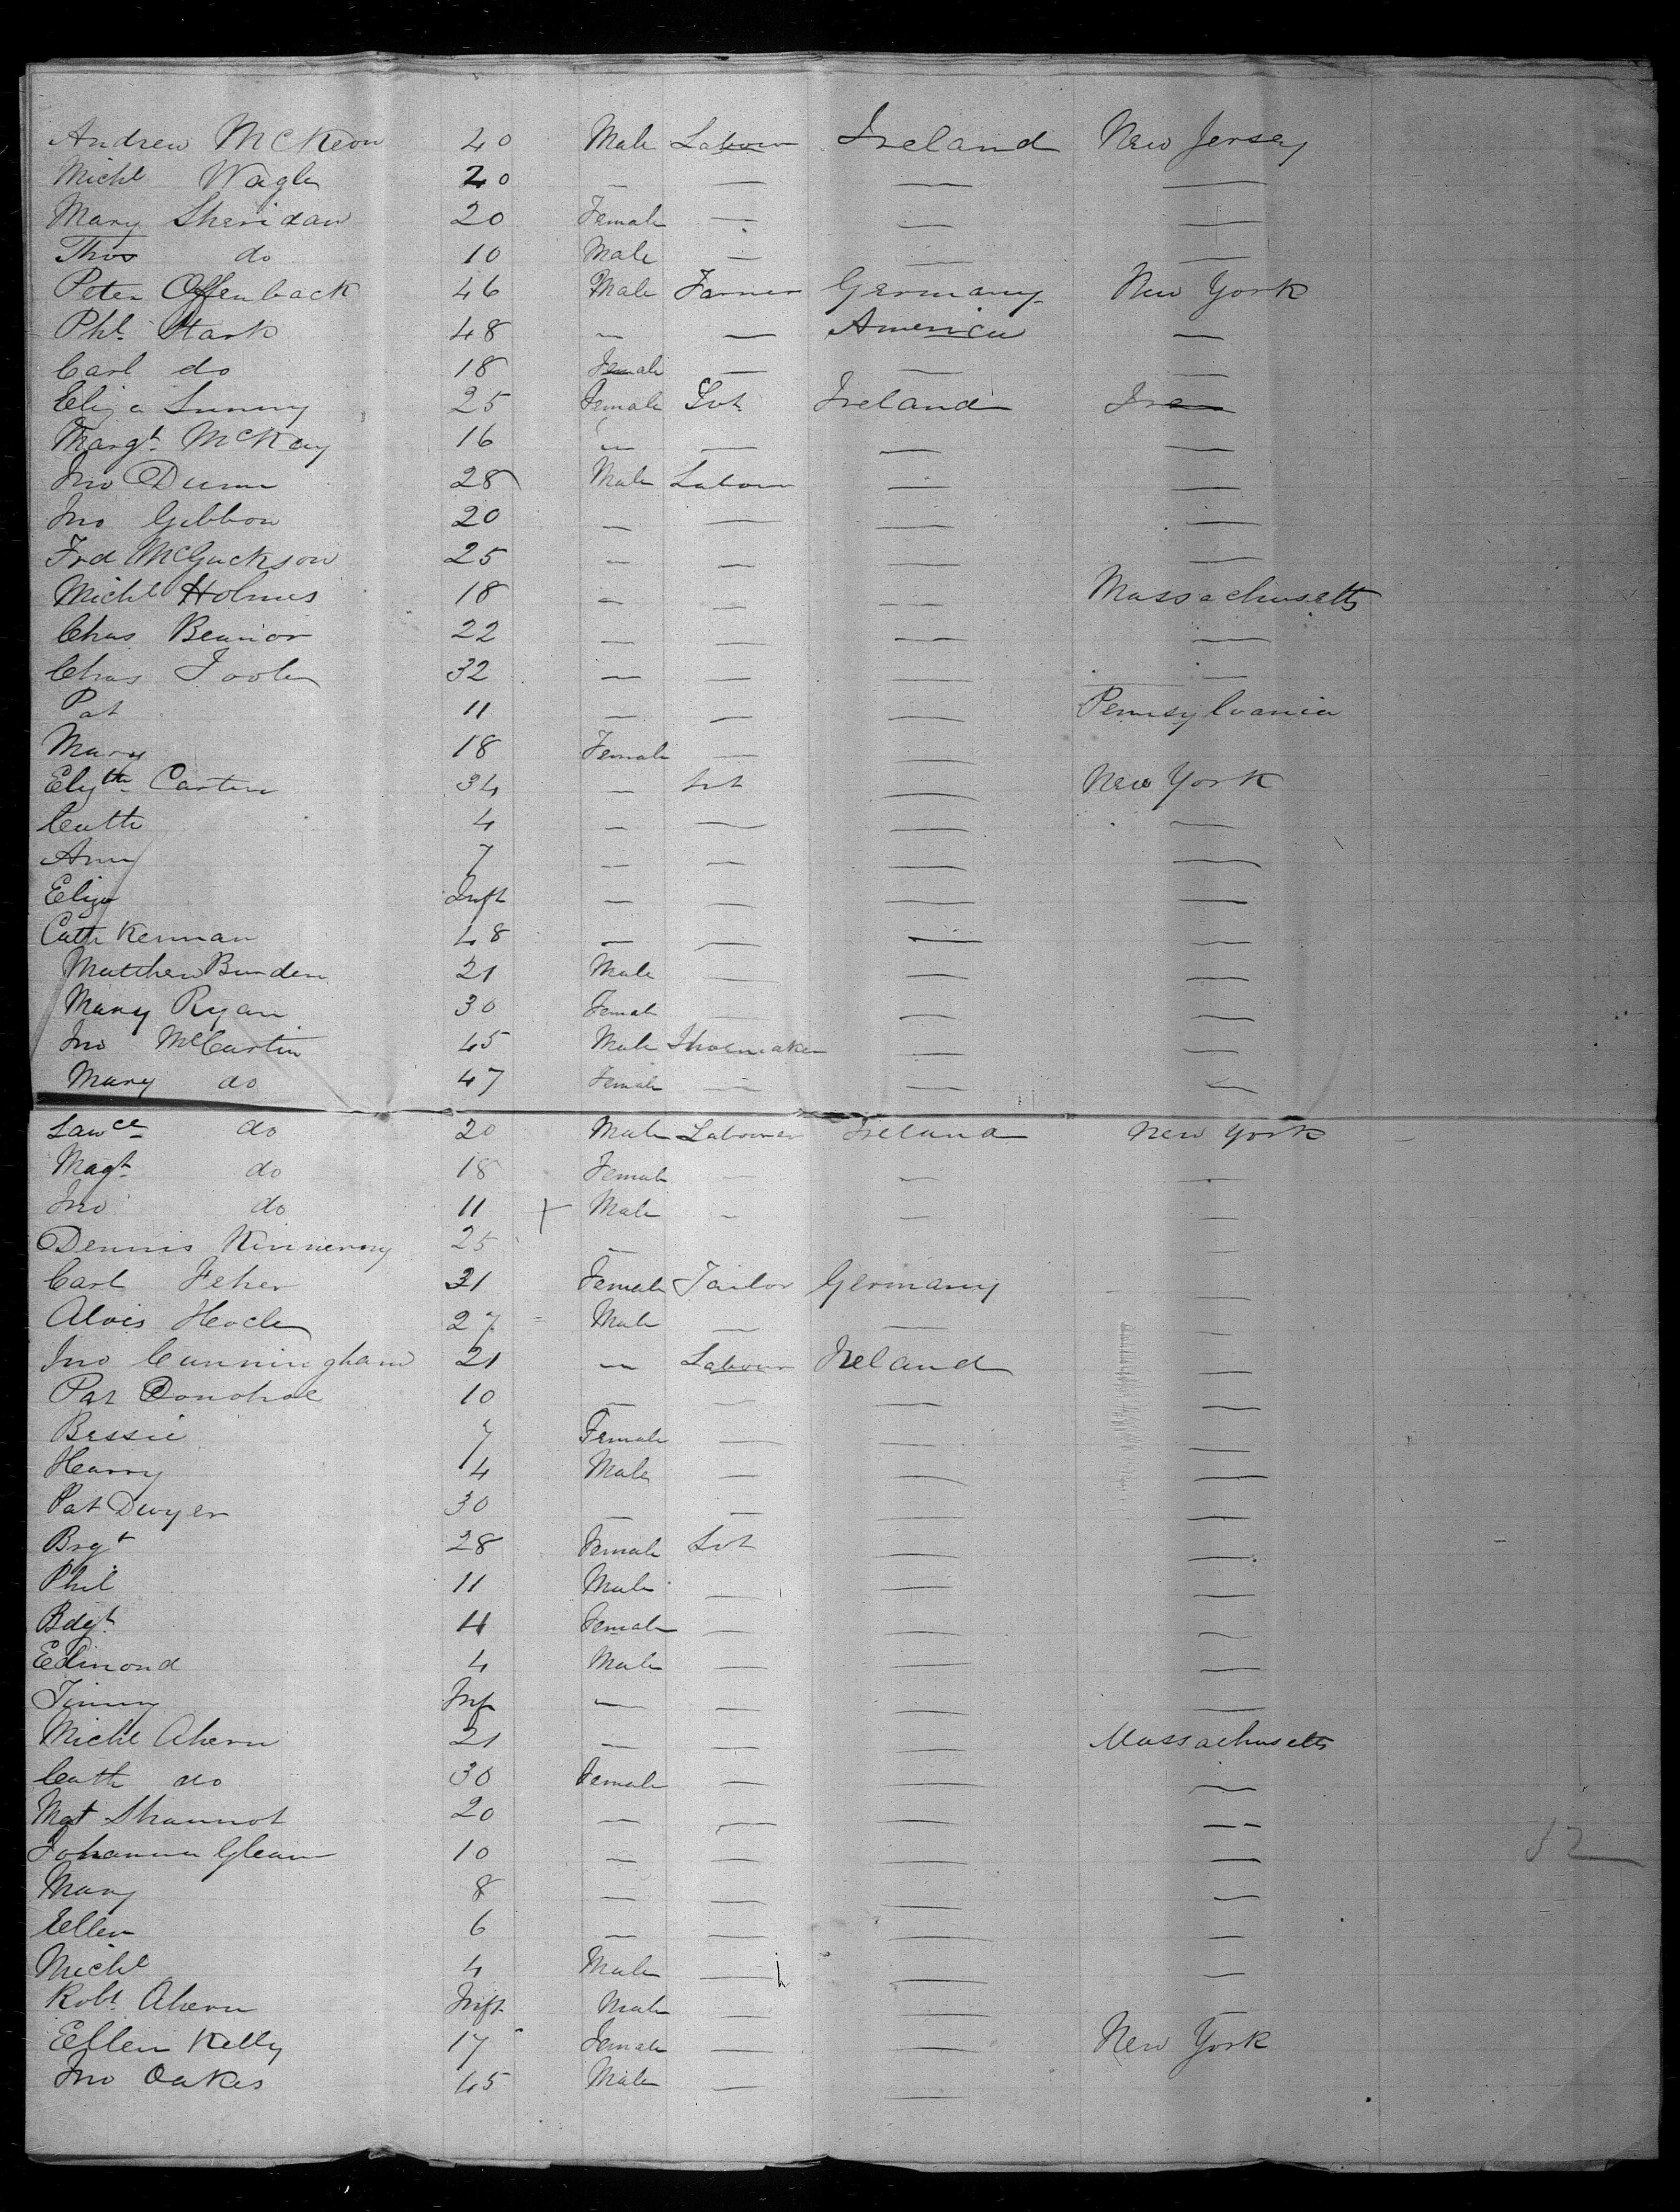 Andrew McKeon 40 Male Labour Ireland New Jersey
Michl Nagle 20 — — — —
Mary Sheridan 20 Female — — —
Thos do 10 Male — — —
Peter Offenback 46 Male Farmer Germany New York
Phl. Stark 48 — — America —
Carl do 18 Female — — —
Eliza Lunny 25 Female Svt Ireland
Margt. McKay 16 — — — —
Jno Dunn 28 Male Labour — —
Jno Gibbon 20 — — — —
Frd McGuckson 25 — — — —
Michl Holmes 18 — — — Massachusetts
Chas 22 — — — —
Chas Toole 32 — — — —
Pat 11 — — — Pennsylvania
Mary 18 Female — —
Elizth Carten 34 — Svt — New York
Cath 4 — — — —
Ann 7 — — — —
Eliza Inft — — — —
Cath Kernan 48 — — — —
Matthew Burden 21 Male — — —
Mary Ryan 30 Female — — —
Jno McCartin 45 Male Shoemaker — —
Mary do 47 Female — — —
Lawce do 20 Male Labourer Ireland New York
Magt do 18 Female — — —
Jno do 11 + Male — — —
Dennis Kinnerny 25 — —
Carl Feher 31 Female Tailor Germany —
Alois 27 Male — — —
Jno Cunningham 21 — Labour Ireland —
Pat Donohoe 10 — — — —
Bessie 7 Female — — —
Harry 4 Male — — —
Pat Dwyer 30 — — — —
Brgt 28 Female Svt — —
Phil 11 Male — — —
Bdgt 11 Female — — —
Edmond 4 Male — — —
Timmy Inf — — — —
Michl Ahern 21 — — — Massachusetts
Cath do 30 Female — — —
Mgt Shannot 20 — — — —
Johanna Glean 10 — — — —
Mary 8 — — — —
Ellen 6 — — — —
Michl 4 Male — — —
Robt Ahern Inft Male — — —
Ellen Kelly 17 Female — — New York
Jno Oakes 45 Male — —